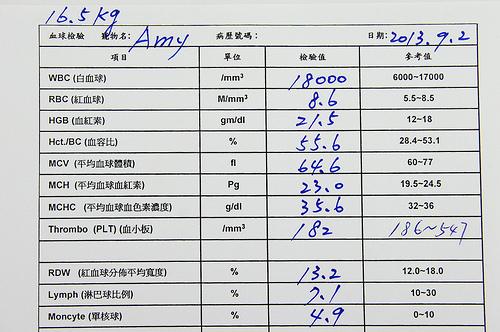 16.5kg
血球檢驗 寵物名: Amy 病歷號碼: 日期: 2013.9.2
項目 單位 檢驗值 參考值
WBC (白血球) /mm³ 18000 6000~17000
RBC (紅血球) M/mm³ 8.6 5.5~8.5
HGB (血紅素) gm/dl 21.5 12~18
Hct./BC (血容比) % 55.6 28.4~53.1
MCV (平均血球體積) fl 64.6 60~77
MCH (平均血球血紅素) Pg 23.0 19.5~24.5
MCHC (平均血球血色素濃度) g/dl 35.6 32~36
Thrombo (PLT) (血小板) /mm³ 182 186~547
RDW (紅血球分佈平均寬度) % 13.2 12.0~18.0
Lymph (淋巴球比例) % 7.1 10~30
Moncyte (單核球) % 4.9 0~10